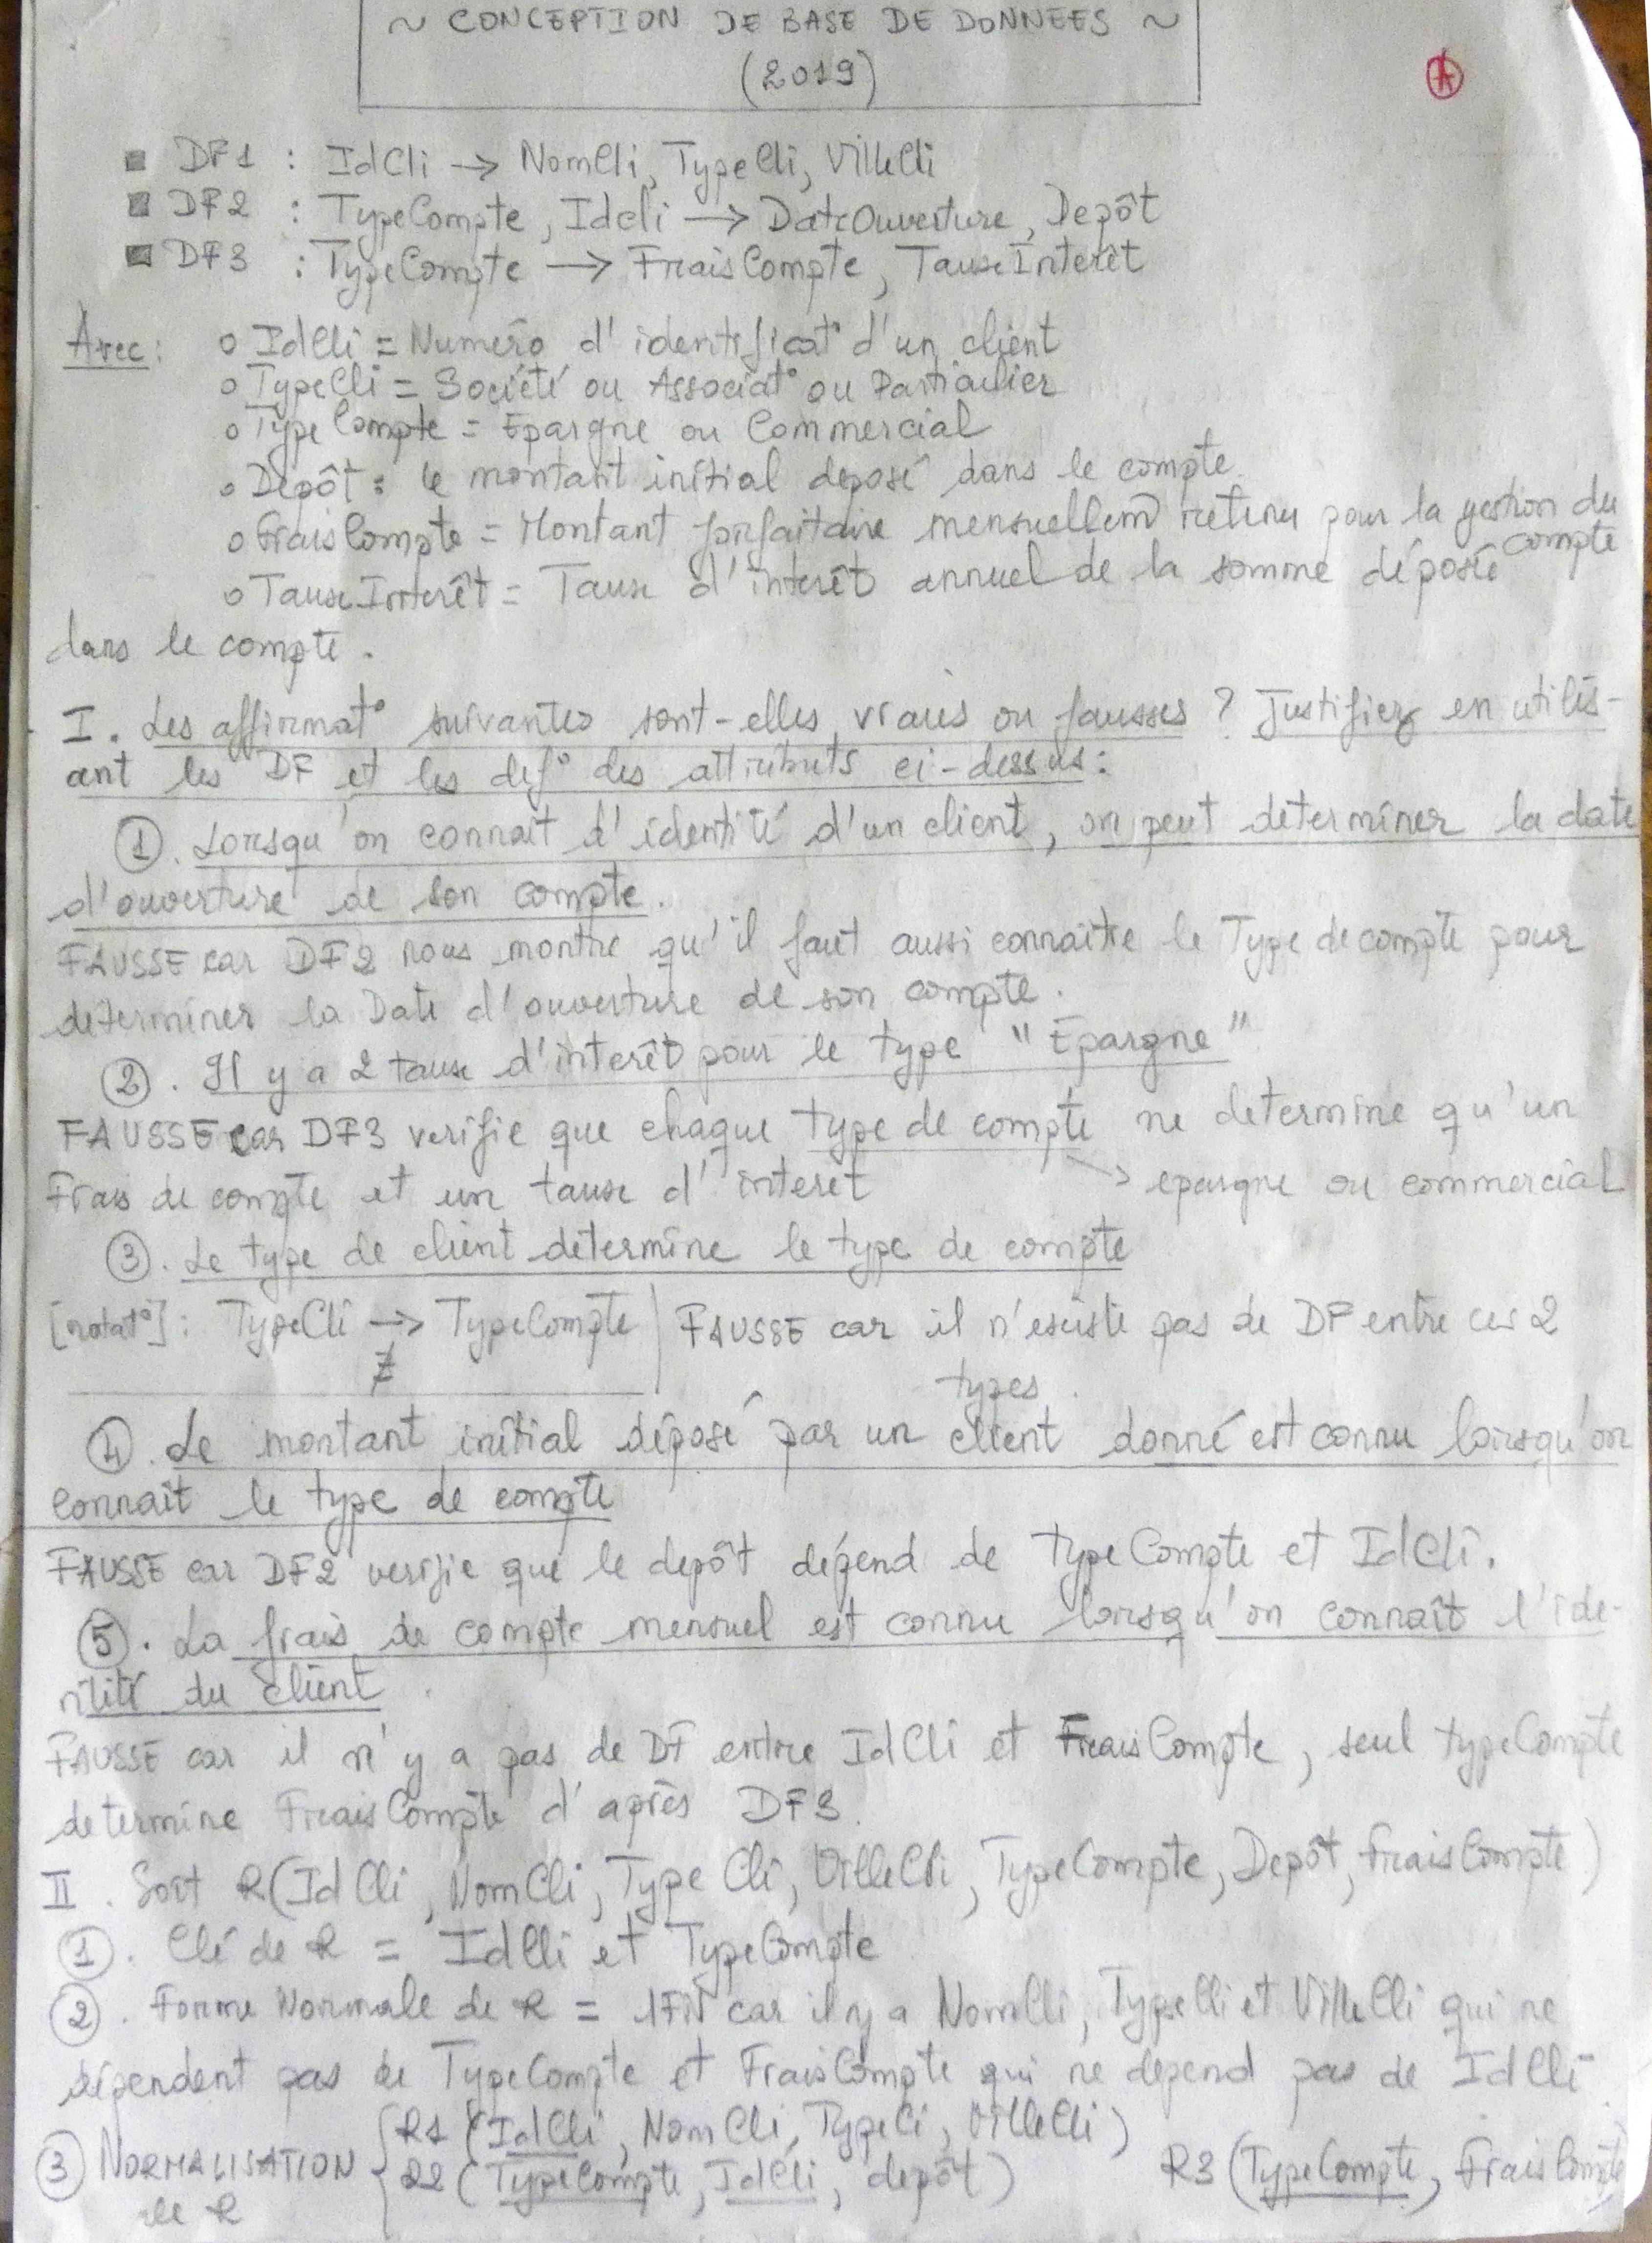 ~ CONCEPTION DE BASE DE DONNEES ~
(2019)
DF1 : IdCli → NomCli, TypeCli, VilleCli
DF2 : TypeCompte, Idcli → DateOuverture, Depôt
DF3 : TypeCompte → FraisCompte, TauxInterêt
Avec : o IdCli = Numéro d'identificat° d'un client
o TypeCli = Société ou Associat° ou Particulier
o TypeCompte = Epargne ou Commercial
o Dépôt : le montant initial deposé dans le compte
o FraisCompte = Montant forfaitaire mensuellem̄ retenu pour la gestion du compte
o TauxInterêt = Taux d'interêt annuel de la somme déposée
dans le compte.
I. Les affirmat° suivantes sont-elles vraies ou fausses ? Justifiez en utilis-
ant les DF et les def° des attributs ci-dessus :
1. Lorsqu'on connait l'identité d'un client, on peut determiner la date
d'ouverture de son compte.
FAUSSE car DF2 nous montre qu'il faut aussi connaître le Type de compte pour
déterminer la Date d'ouverture de son compte.
2. Il y a 2 taux d'interêt pour le type "Epargne"
FAUSSE car DF3 verifie que chaque type de compte ne determine qu'un
Frais de compte et un taux d'interêt → epargne ou commercial
3. Le type de client determine le type de compte
[notat°] : TypeCli → TypeCompte | FAUSSE car il n'existe pas de DF entre ces 2
∄ types.
4. Le montant initial déposé par un client donné est connu lorsqu'on
connait le type de compte
FAUSSE car DF2 verifie que le depôt dépend de typeCompte et IdCli.
5. La frais de compte mensuel est connu lorsqu'on connaît l'ide-
ntité du client.
FAUSSE car il n'y a pas de DF entre IdCli et FraisCompte, seul typeCompte
determine FraisCompte d'après DF3.
II. Soit R(IdCli, NomCli, TypeCli, VilleCli, TypeCompte, Depôt, FraisCompte)
1. Clé de R = IdCli et TypeCompte
2. Forme Normale de R = 1FN car il y a NomCli, TypeCli et VilleCli qui ne
dépendent pas de TypeCompte et FraisCompte qui ne depend pas de IdCli
3 NORMALISATION de R { R1 (IdCli, NomCli, TypeCli, VilleCli)
R2 (TypeCompte, IdCli, depôt) R3 (TypeCompte, FraisCompte)